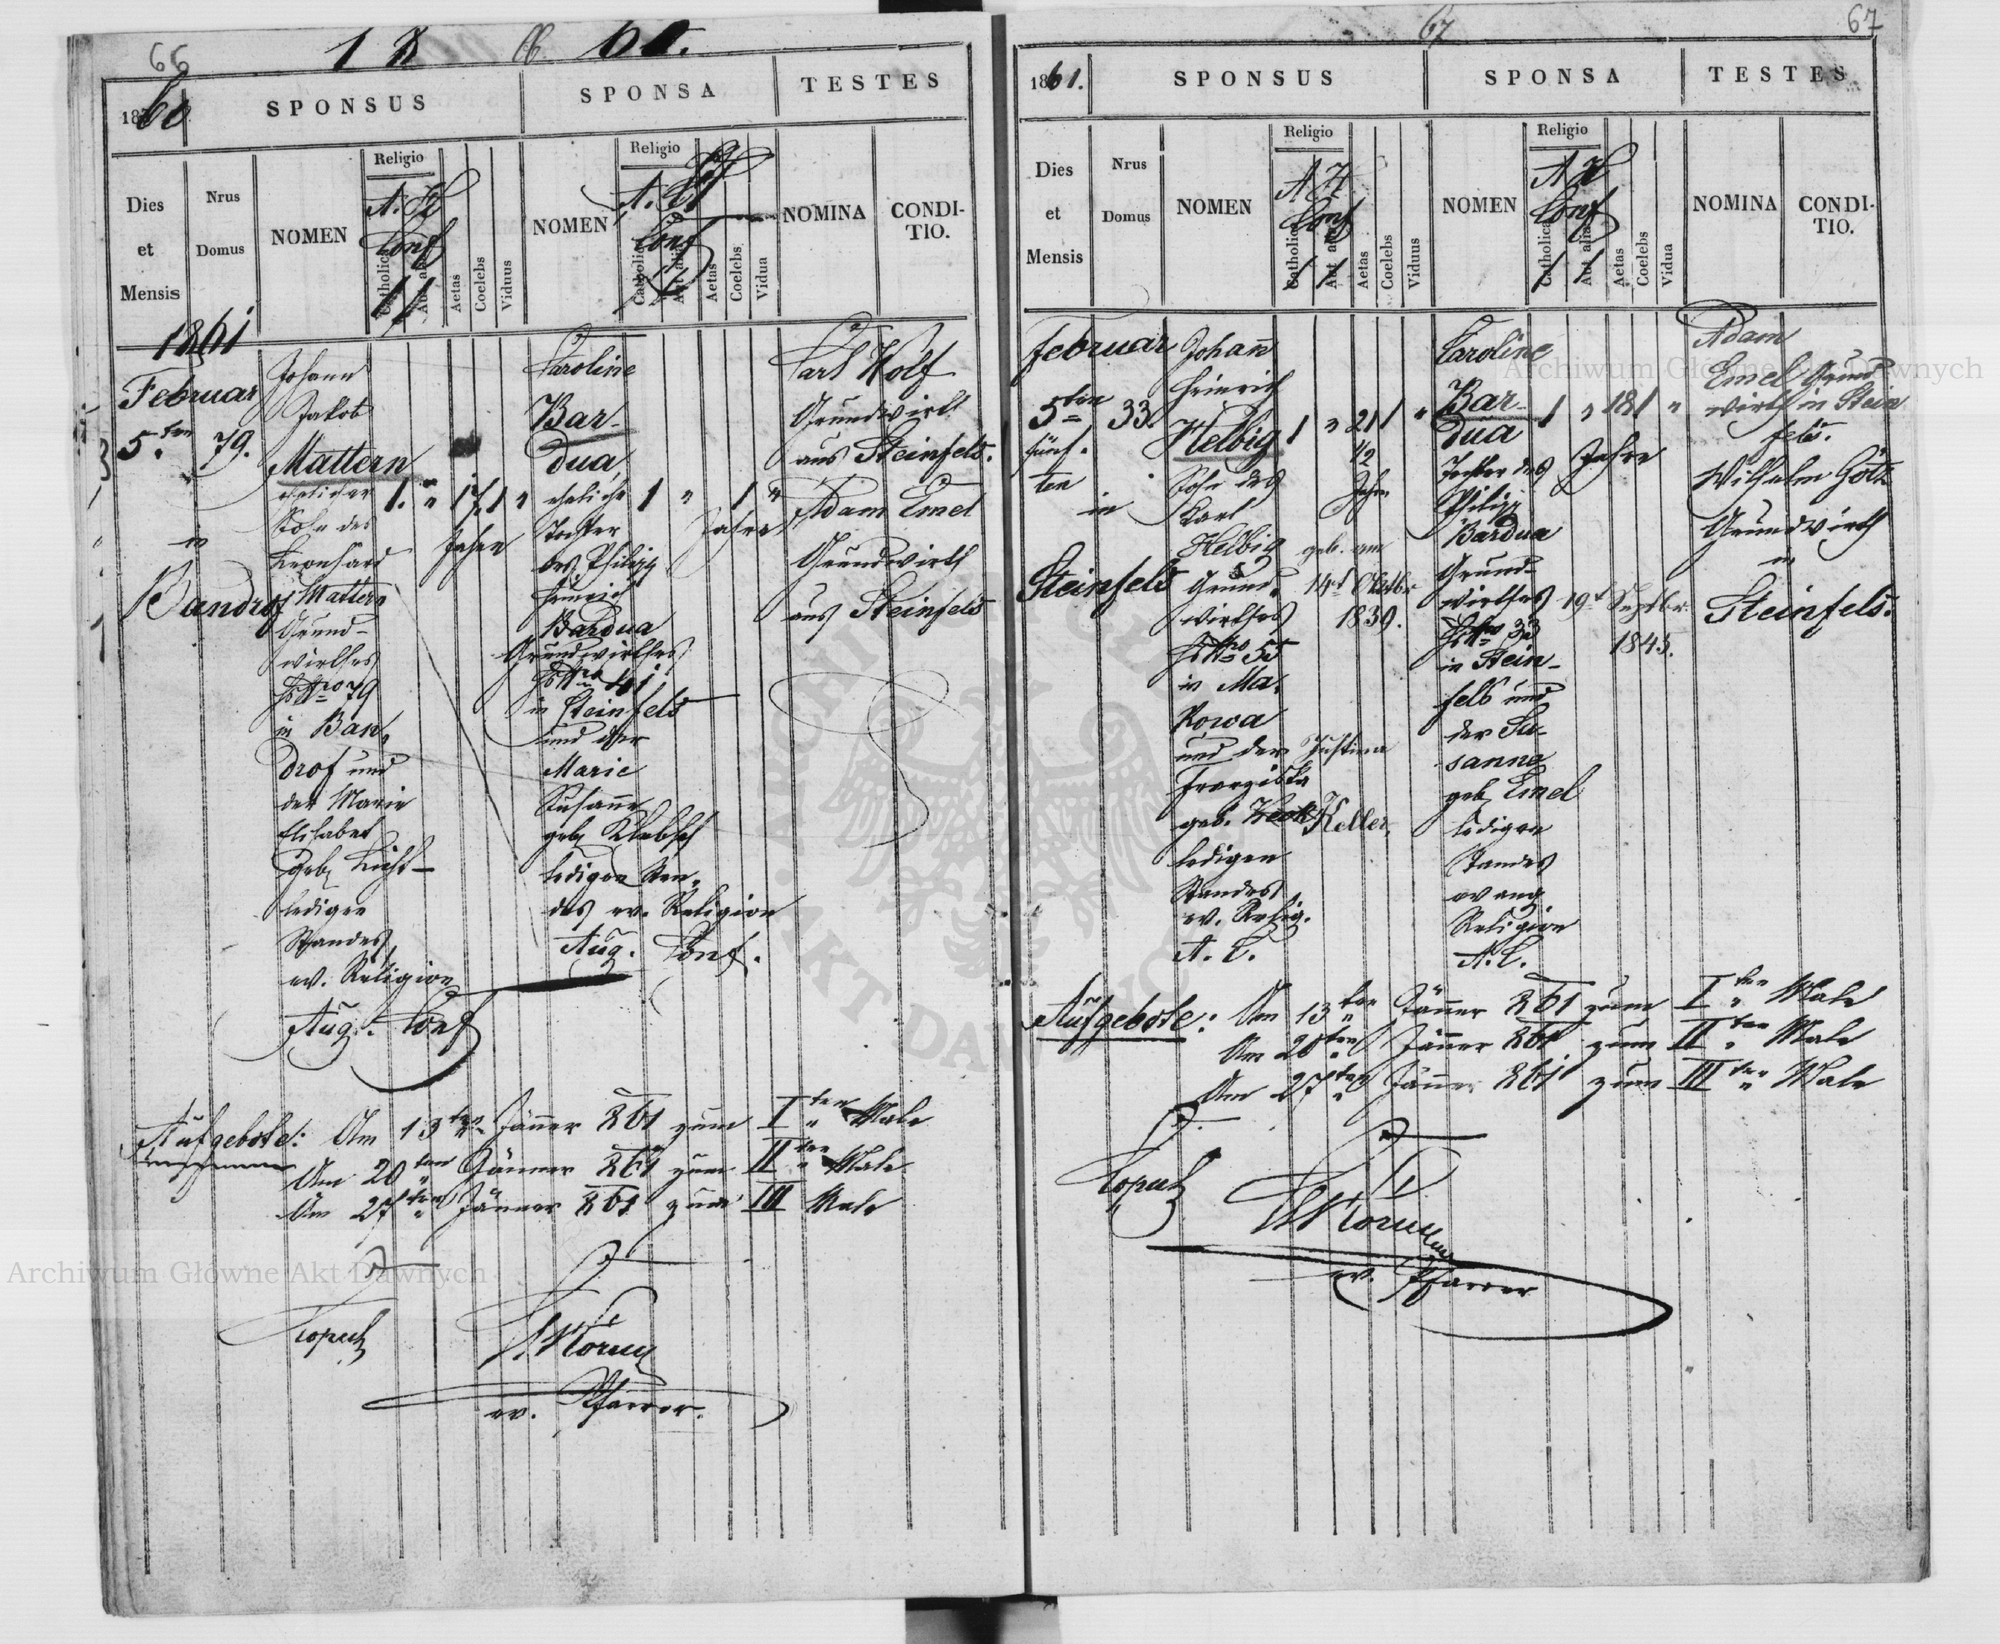 66
1860.
1860
SPONSUS
SPONSA
TESTES
Dies et Mensis
Nrus Domus
NOMEN
Religio
A. H. Conf
Catholica
Aut alia
Aetas
Coelebs
Viduus
NOMEN
Religio
A. H. Conf
Catholica
Aut alia
Aetas
Coelebs
Vidua
NOMINA
CONDI-
TIO.
1861
Februar
5.ten
79.
in
Bandrof
Johann
Jakob
Mattern
ehelicher
Sohn des
Leonhard
Mattern
Grund-
wirthes
79
in Ban,
drof und
der Marie
Elisabet
geb
ledigen
Standes
ev. Religion
Aug. Conf
1. " 17 1 "
Jahre
Caroline
Bar-
dua,
eheliche
Tochter
des Philipp
Heinrich
Bardua
Grundwirthes
41
in Steinfels
und der
Marie
Susanne
geb Klabsch
ledigen Stan,
des ev. Religion
Aug. Conf.
1 " 1 "
Jahre
Carl Wolf
Grundwirth
aus Steinfels.
Adam Emel
Grundwirth
aus Steinfels
Aufgebote: Am 13ten Jänner 861 zum Iten Male
Am 20ten Jänner 861 zum IIten Male
Am 27ten Jänner 861 zum III Male
ev. Pfarrer.
67
67
1861.
SPONSUS
SPONSA
TESTES
Dies et Mensis
Nrus Domus
NOMEN
Religio
A H. Conf
Catholica
Aut alia
Aetas
Coelebs
Viduus
NOMEN
Religio
A H Conf
Catholica
Aut alia
Aetas
Coelebs
Vidua
NOMINA
CONDI-
TIO.
Februar
5ten
fünf-
ten
in
Steinfels
33.
Johann
Heinrich
Helbig
Sohn des
Karl
Helbig
Grund,
wirthes
55
in Ma,
kowa
und der Justina
Franziska
geb. Keller,
ledigen
Standes
ev. Relig.
A. C.
1 " 21 1 "
1/2
Jahre
geb. am
14t Oktobr
1839.
Caroline
Bar-
dua
Tochter des
Philipp
Bardua
Grund-
wirthes
33
in Stein-
fels und
der Su-
sanna
geb Emel
ledigen
Standes
evang
Religion
A. C.
1 " 18 1 "
Jahre
19t Septbr.
1843.
Adam
Emel Grund
wirth in Stein
fels.
Wilhelm Götz
Grundwirth
in
Steinfels.
Aufgebote: Am 13ten Jänner 861 zum Iten Male
Am 20ten Jänner 861 zum IIten Male
Am 27ten Jänner 861 zum IIIten Male
ev. Pfarrer
Archiwum Główne Akt Dawnych
Archiwum Główne Akt Dawnych